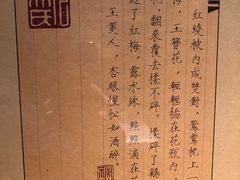 紅綾被內成雙對，鴛鴦枕上一
玉簪花，輕輕插在花瓶內，
翻來覆去揉不碎。揉碎了鷄
了紅梅，露水珠，點點滴在
玉美人，杏眼矇忪如酒醉。